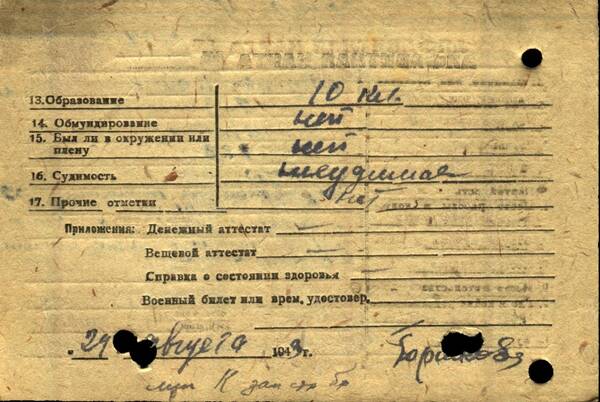 13. Образование 10 кл.
14. Обмундирование нет
15. Был ли в окружении или
плену нет
16. Судимость
17. Прочие отметки нет
Приложения: Денежный аттестат —
Вещевой аттестат —
Справка о состоянии здоровья —
Военный билет или врем. удостовер.
" 24 августа 1943 г.
К зап стр бр